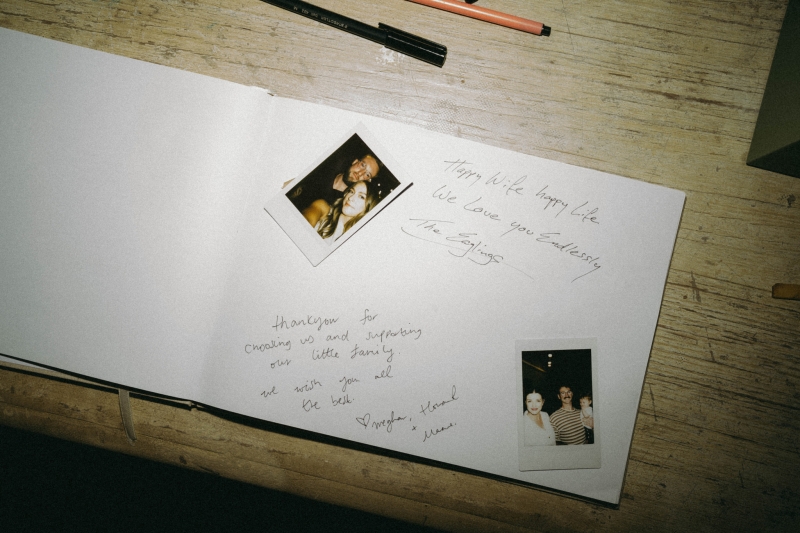 Happy Wife happy Life
We Love you Endlessly
The Eaglings
thankyou for
choosing us and supporting
our little family.
we wish you all
the best.
♡ meghan, Howard
+